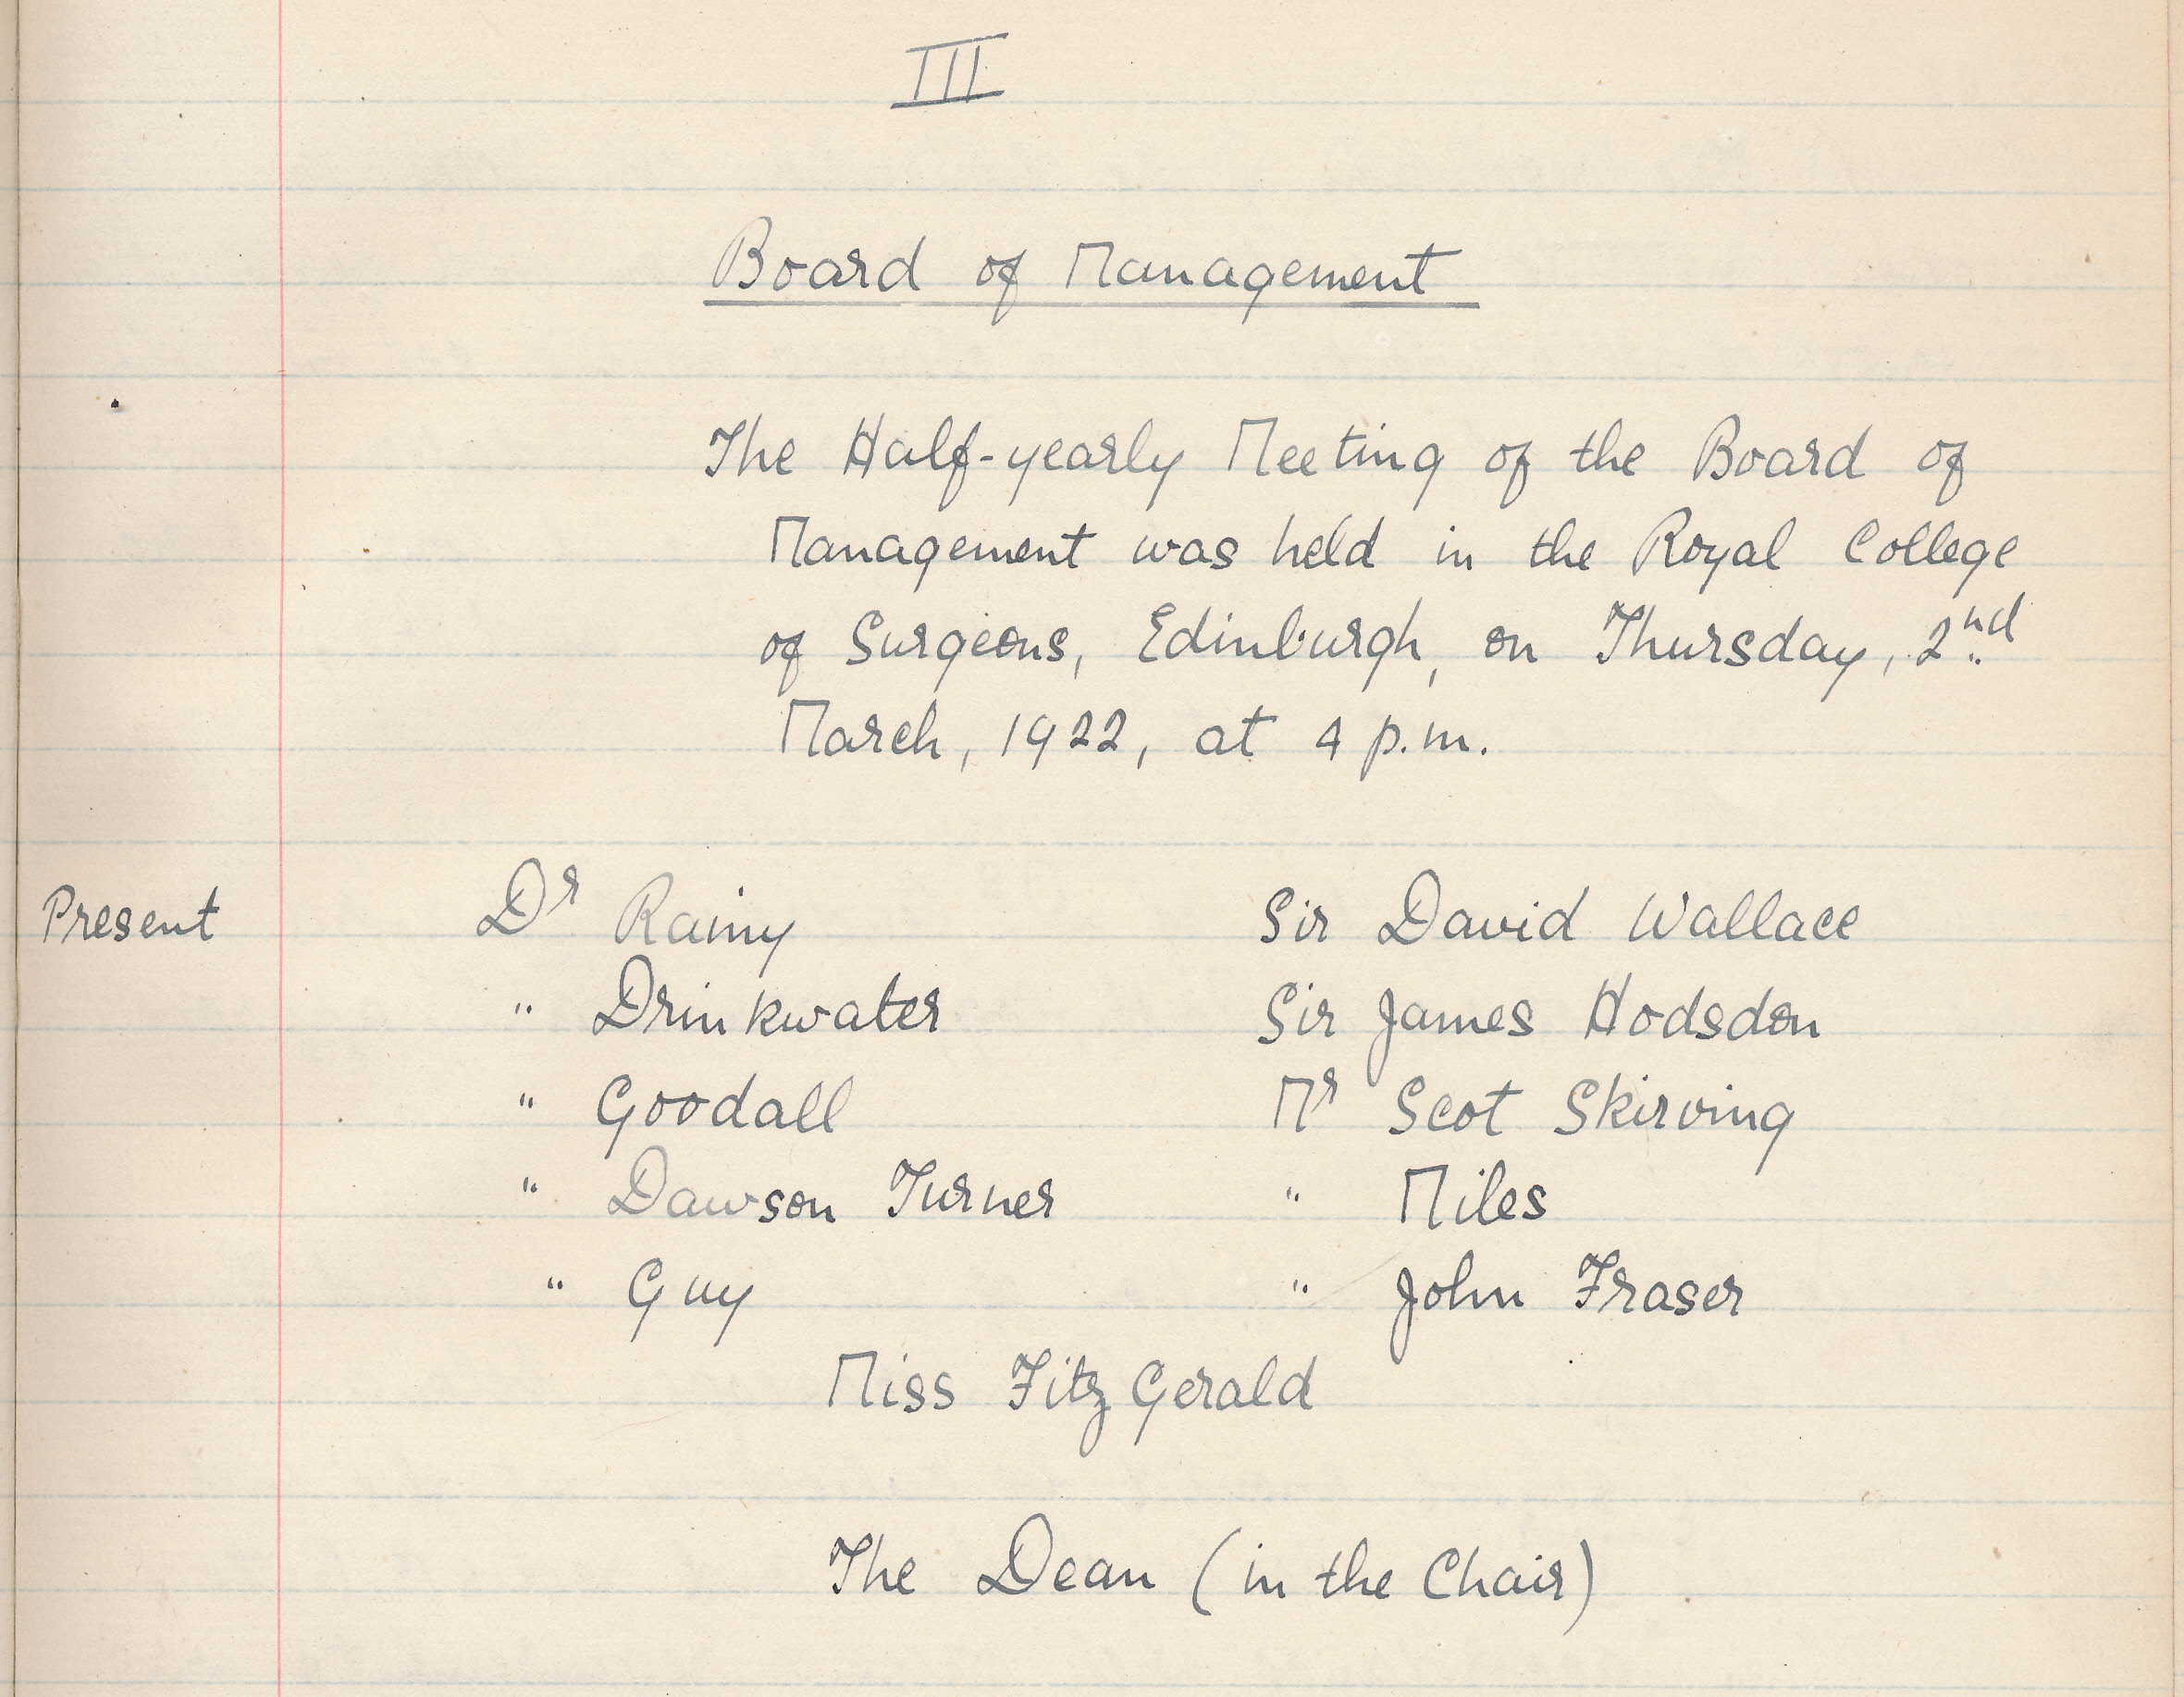 III
Board of Management
The Half-yearly Meeting of the Board of
Management was held in the Royal College
of Surgeons, Edinburgh, on Thursday, 2nd
March, 1922, at 4 p.m.
Present
Dr Rainy
" Drinkwater
" Goodall
" Dawson Turner
" Guy
Sir David Wallace
Sir James Hodsdon
Mr Scot Skirving
" Miles
" John Fraser
Miss FitzGerald
The Dean (in the Chair)